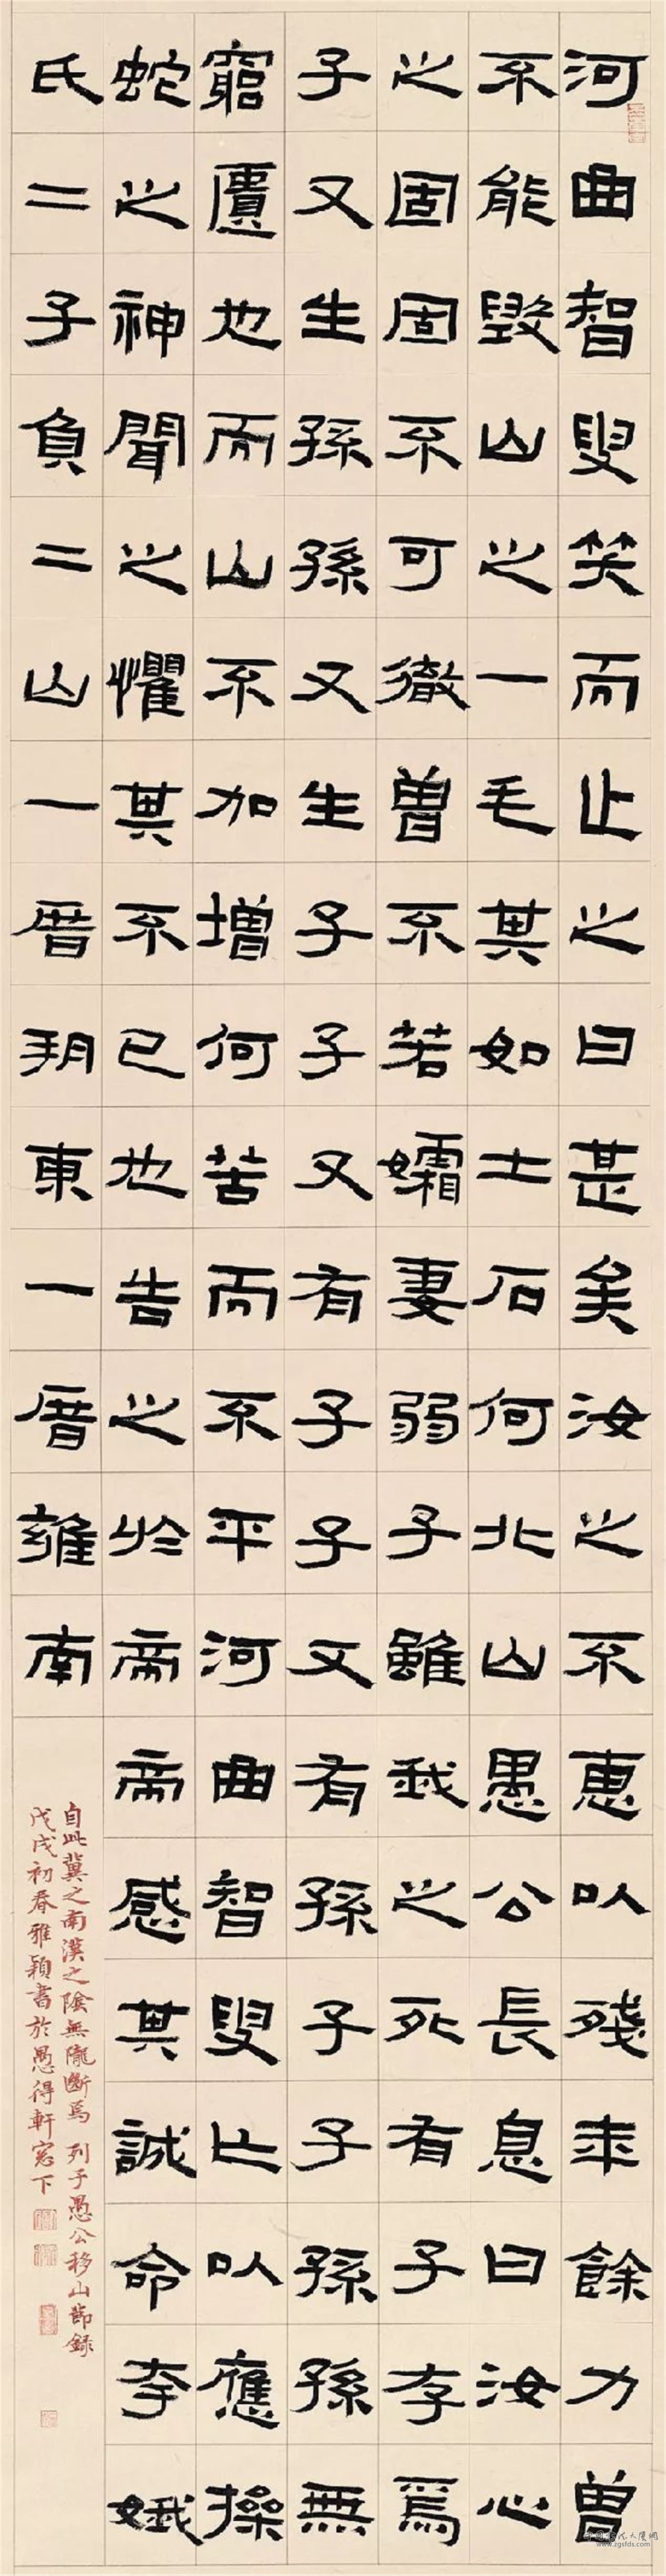 河曲智叟笑而止之曰甚矣汝之不惠以殘年餘力曾
不能毀山之一毛其如土石何北山愚公長息曰汝心
之固固不可徹曾不若孀妻弱子雖我之死有子存焉
子又生孫孫又生子子又有子子又有孫子子孫孫無
窮匱也而山不加增何苦而不平河曲智叟亡以應操
蛇之神聞之懼其不已也告之於帝帝感其誠命夸娥
氏二子負二山一厝朔東一厝雍南
自此冀之南漢之陰無隴斷焉 列子愚公移山節錄
戊戌初春雅穎書於愚得軒窓下
www.zgsfds.com